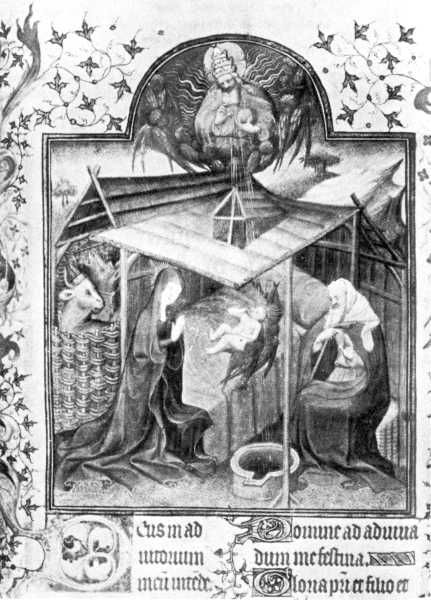 Deus in ad
iutorium
meū intēde.
Domine ad adiuua
dum me festina.
Gloria pr̄i et filio et